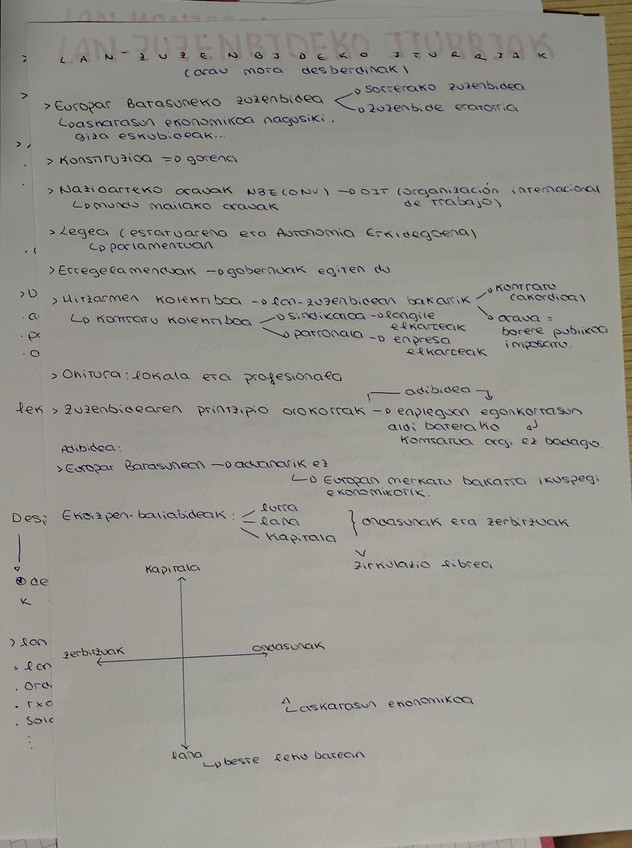 LAN-ZUZENBIDEKO ITURRIAK
(arau mota desberdinak)
> Europar Batasuneko zuzenbidea → sorrerako zuzenbidea
→ zuzenbide eratorria
↳ askatasun ekonomikoa nagusiki.
giza eskubideak...
> Konstituzioa => gorena
> Nazioarteko arauak NBE (ONU) → OIT (organización internacional
de trabajo)
↳ mundu mailako arauak
> Legea (estatuarena eta Autonomia Erkidegoena)
↳ parlamentuan
> Erregelamenduak → gobernuak egiten du
> Hitzarmen kolektiboa → lan-zuzenbidean bakarrik → kontratu
(akordioa)
→ araua =
botere publikoa
imposatu.
↳ kontratu kolektiboa → sindikatoa → langile
elkarteak
→ patronala → enpresa
elkarteak
> Ohitura: lokala eta profesionala
adibidea
> zuzenbidearen printzipio orokorrak → enpleguan egonkortasun
aldi baterako
kontratua arg. ez badago.
Adibidea:
> Europar Batasunean → aduanarik ez
↳ Europan merkatu bakarra ikuspegi
ekonomikotik.
Ekoizpen-baliabideak: lurra
lana
kapitala
} ondasunak eta zerbitzuak
zirkulazio librea
Kapitala
zerbitzuak
ondasunak
↳ askatasun ekonomikoa
lana
↳ beste leku batean
lek
Desp
de
K
> lan
. lan
. ord
. txo
. Sold